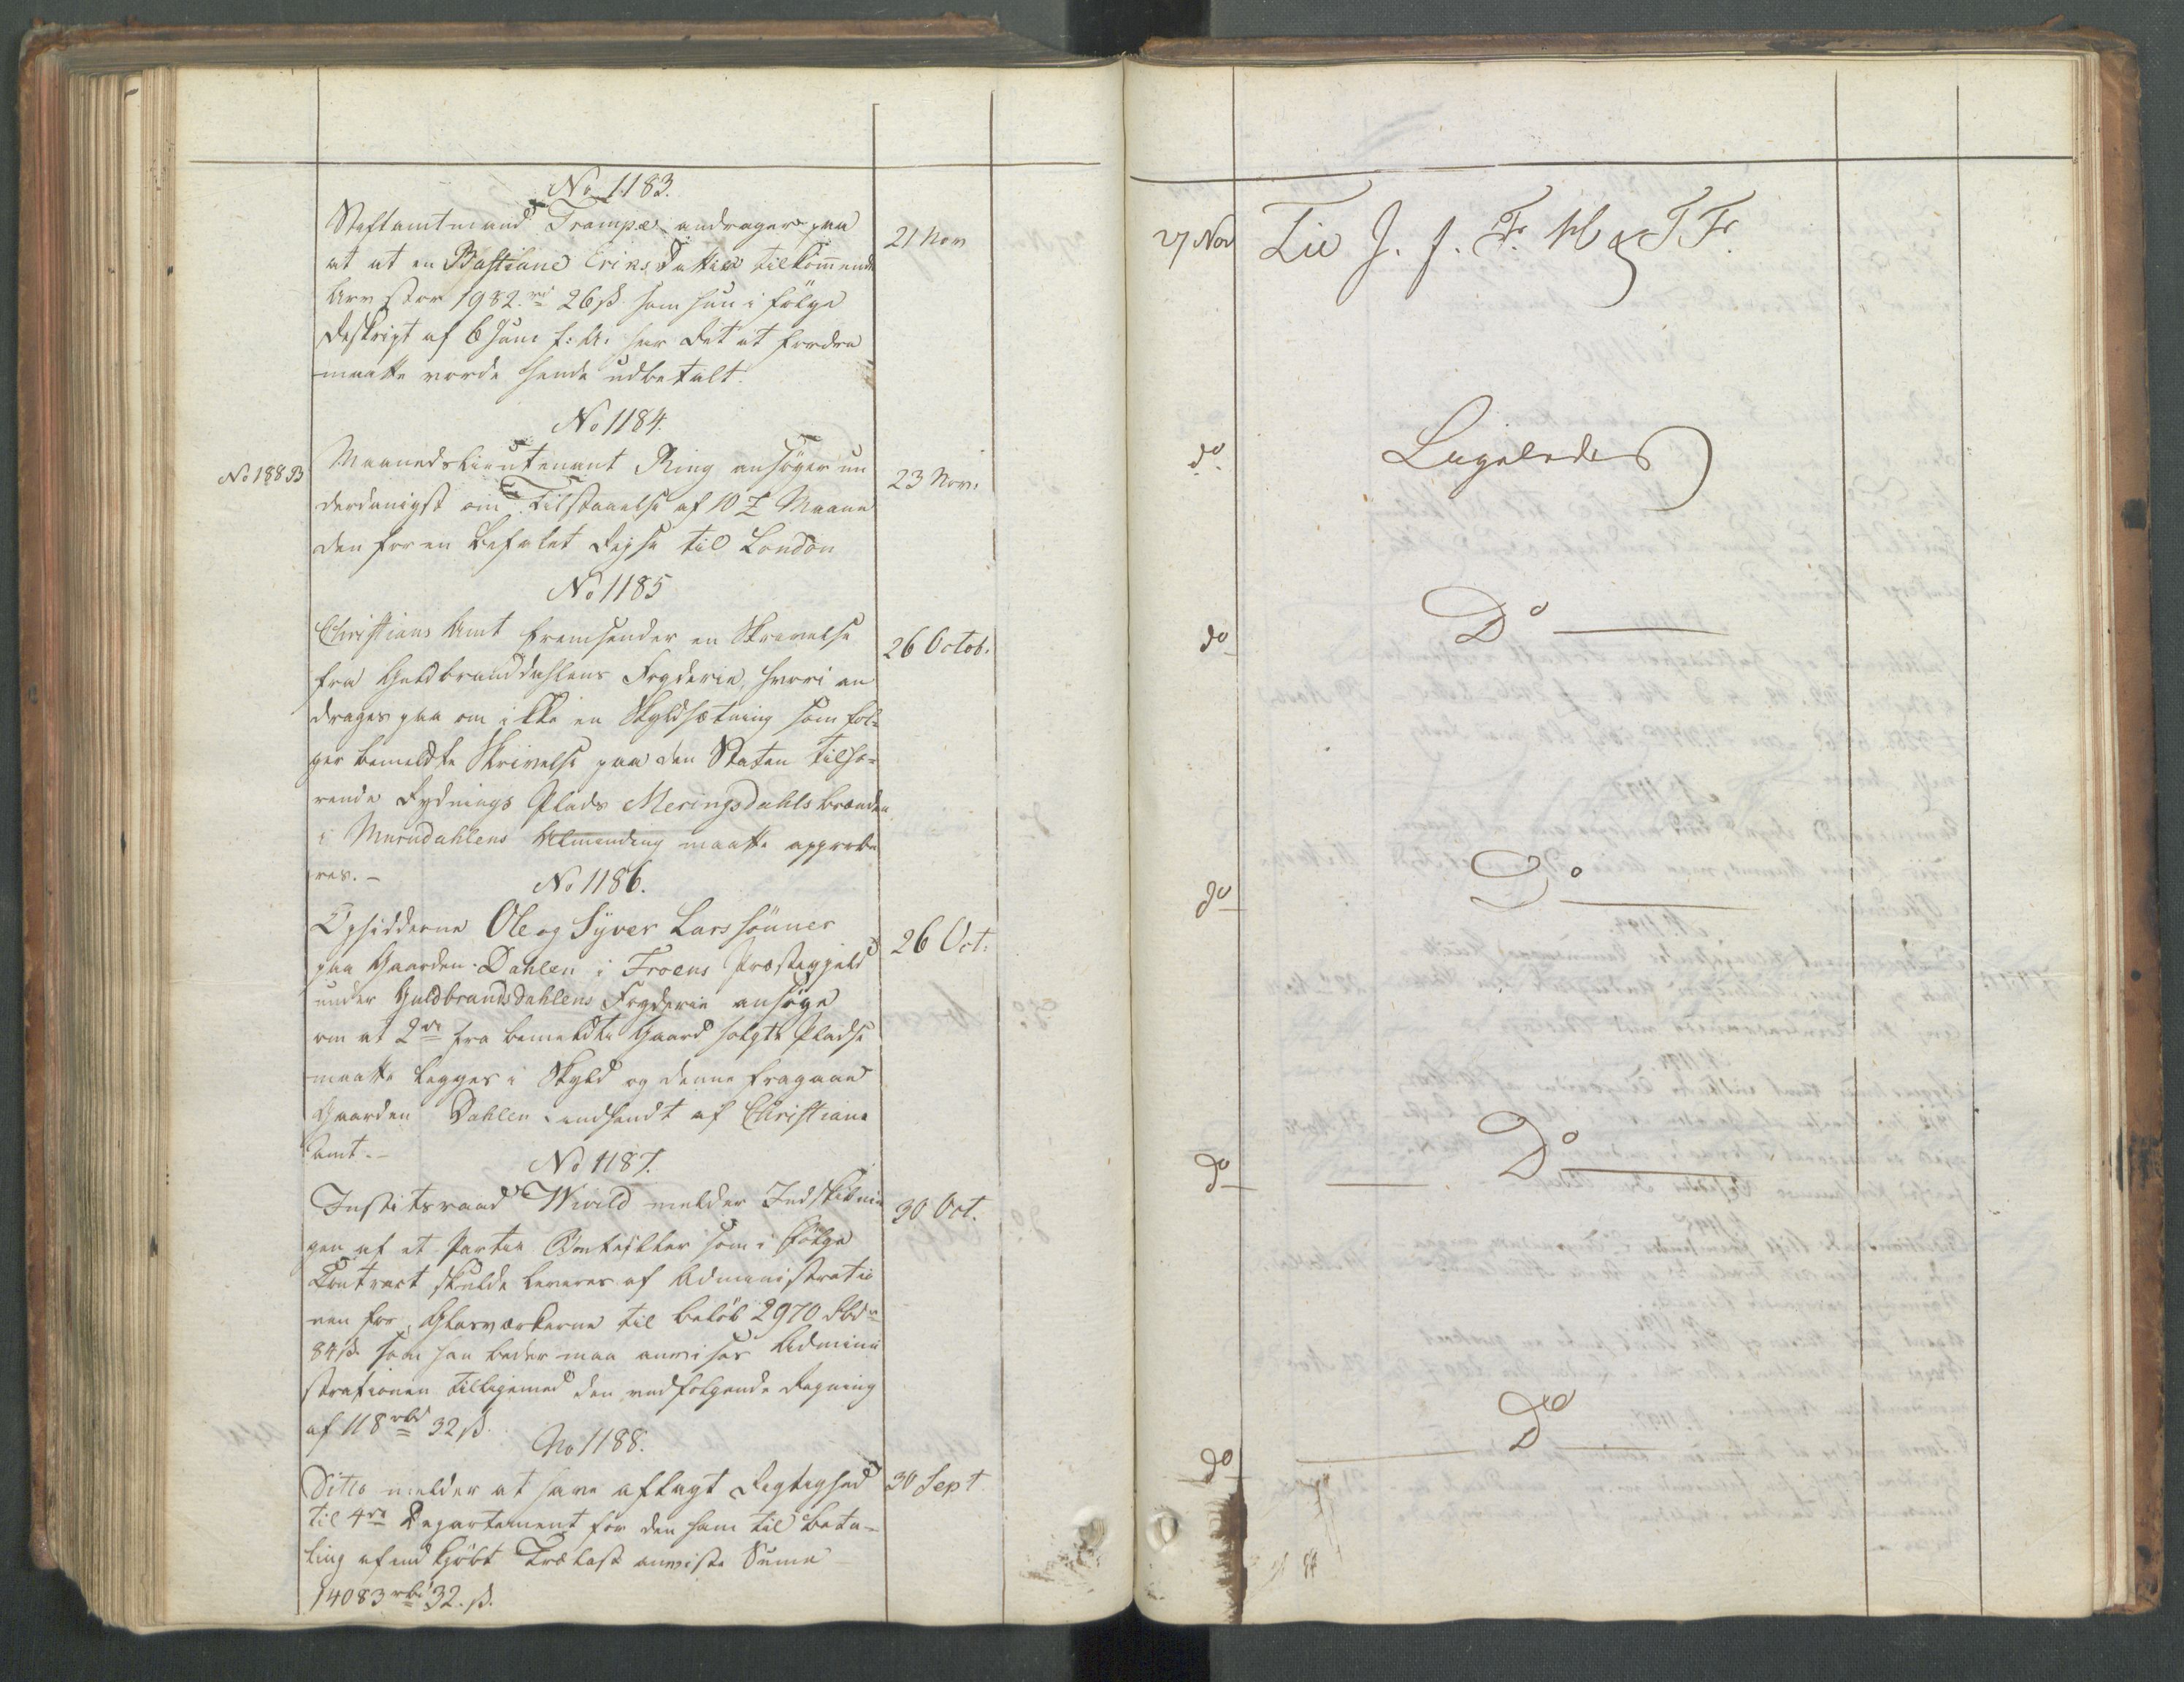 No 1183.
Stiftamtmand Trampe andrager paa
at at en Bastiane Eriks Datter tilkommende
Arv stor 1982 rd 26 ß som hun i følge
Reskript af 6 Juni f: A: har Ret at fordre
maatte vorde hende udbetalt.
21 Nov
27 Nov
Til J. J. F. M og T F.
No 1184.
No 188 B
Maanedslieutenant Ring ansøger un
derdanigst om Tilstaaelse af 10 £ Maane
den for en befalet Rejse til London
23 Nov.
do
Ligeledes
No 1185
Christians Amt fremsender en Skrivelse
fra Guldbranddahlens Fogderie, hvori an
drages paa om ikke en Skyldsætning som føl-
ger bemeldte Skrivelse paa den Staten tilhø-
rende Rydnings Plads Meringsdahls brænden
i Murudahlens Almending maatte approbe
res. -
26 Octob.
do
Do
No 1186.
Opsidderne Ole og Syver Lars sönner
paa Gaarden Dahlen i Froens Præstegjeld
under Guldbrandsdahlens Fogderie ansøge
om at 2de fra bemeldte Gaard solgte Pladse
maatte legges i Skyld og denne fragaae
Gaarden Dahlen indsendt af Christians
Amt. -
26 Oct.
do
Do
No 1187.
Justitsraad Wivild melder Indskibnin
gen af et Partie Bouteiller som i følge
Contract skulde leveres af Administratio
nen for Glasværkerne til beløb 2970 Rbd
84 ß som han beder maa anvises Admini
strationen tilligemed den vedfølgende Regning
af 118 rbd 32 ß.
30 Oct.
do
Do
No 1188.
Ditto melder at have aflagt Rigtighed
til 4de Departement for den ham til beta-
ling af indkjøbt Trælast anviste Summe
14083 rbd 32. ß.
30 Sept.
do
Do